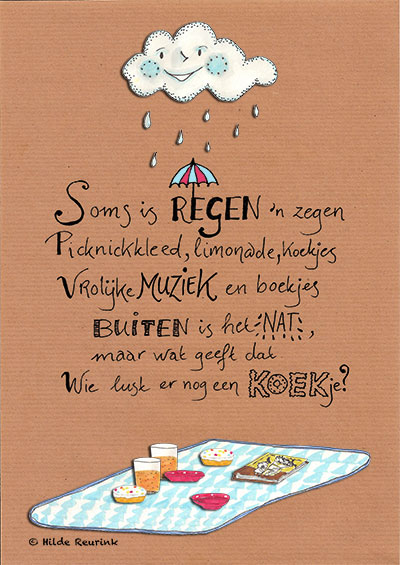 Soms is REGEN 'n zegen
Picknickkleed, limonade, koekjes
Vrolijke MUZIEK en boekjes
BUITEN is het NAT,
maar wat geeft dat
Wie lust er nog een KOEKje?
© Hilde Reurink